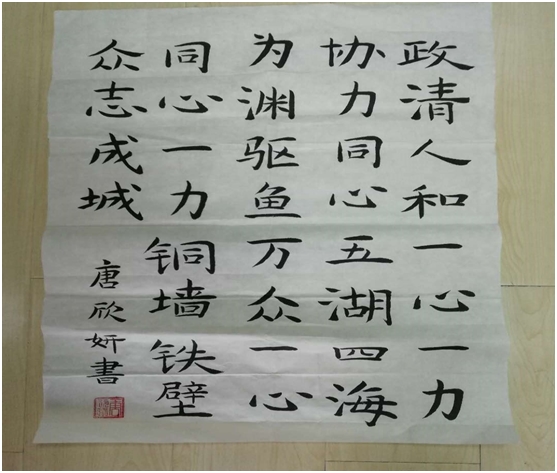 政清人和一心一力
协力同心五湖四海
为渊驱鱼万众一心
同心一力铜墙铁壁
众志成城
唐欣妍書